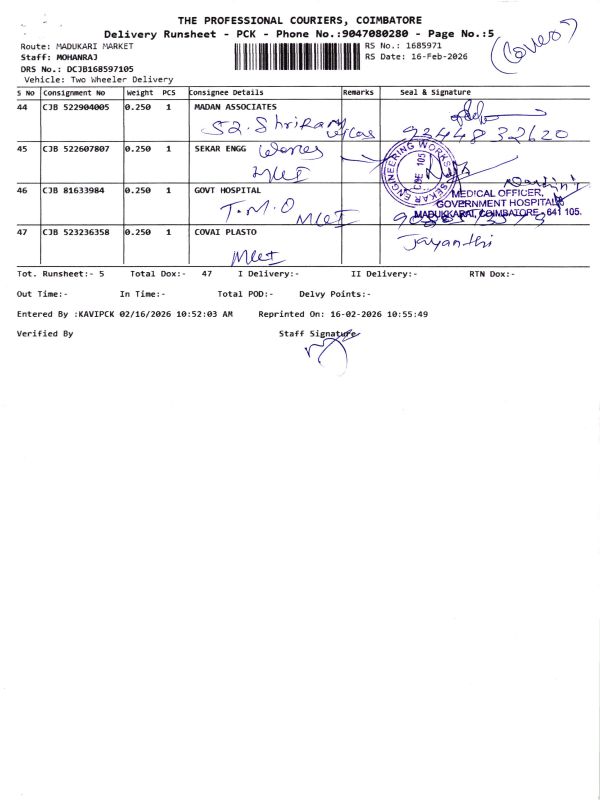 THE PROFESSIONAL COURIERS, COIMBATORE
Delivery Runsheet - PCK - Phone No.:9047080280 - Page No.:5
Route: MADUKARI MARKET
RS No.: 1685971
Staff: MOHANRAJ
RS Date: 16-Feb-2026
DRS No.: DCJB168597105
Vehicle: Two Wheeler Delivery
S No Consignment No Weight PCS Consignee Details Remarks Seal & Signature
44 CJB 522904005 0.250 1 MADAN ASSOCIATES
52. Shriram
45 CJB 522607807 0.250 1 SEKAR ENGG
ENGINEERING WORKS SEKAR
CBE 105
46 CJB 81633984 0.250 1 GOVT HOSPITAL
T.M.O
MEDICAL OFFICER,
GOVERNMENT HOSPITAL
MADUKKARAI, COIMBATORE - 641 105.
47 CJB 523236358 0.250 1 COVAI PLASTO
Jayanthi
Tot. Runsheet:- 5 Total Dox:- 47 I Delivery:- II Delivery:- RTN Dox:-
Out Time:- In Time:- Total POD:- Delvy Points:-
Entered By :KAVIPCK 02/16/2026 10:52:03 AM Reprinted On: 16-02-2026 10:55:49
Verified By Staff Signature